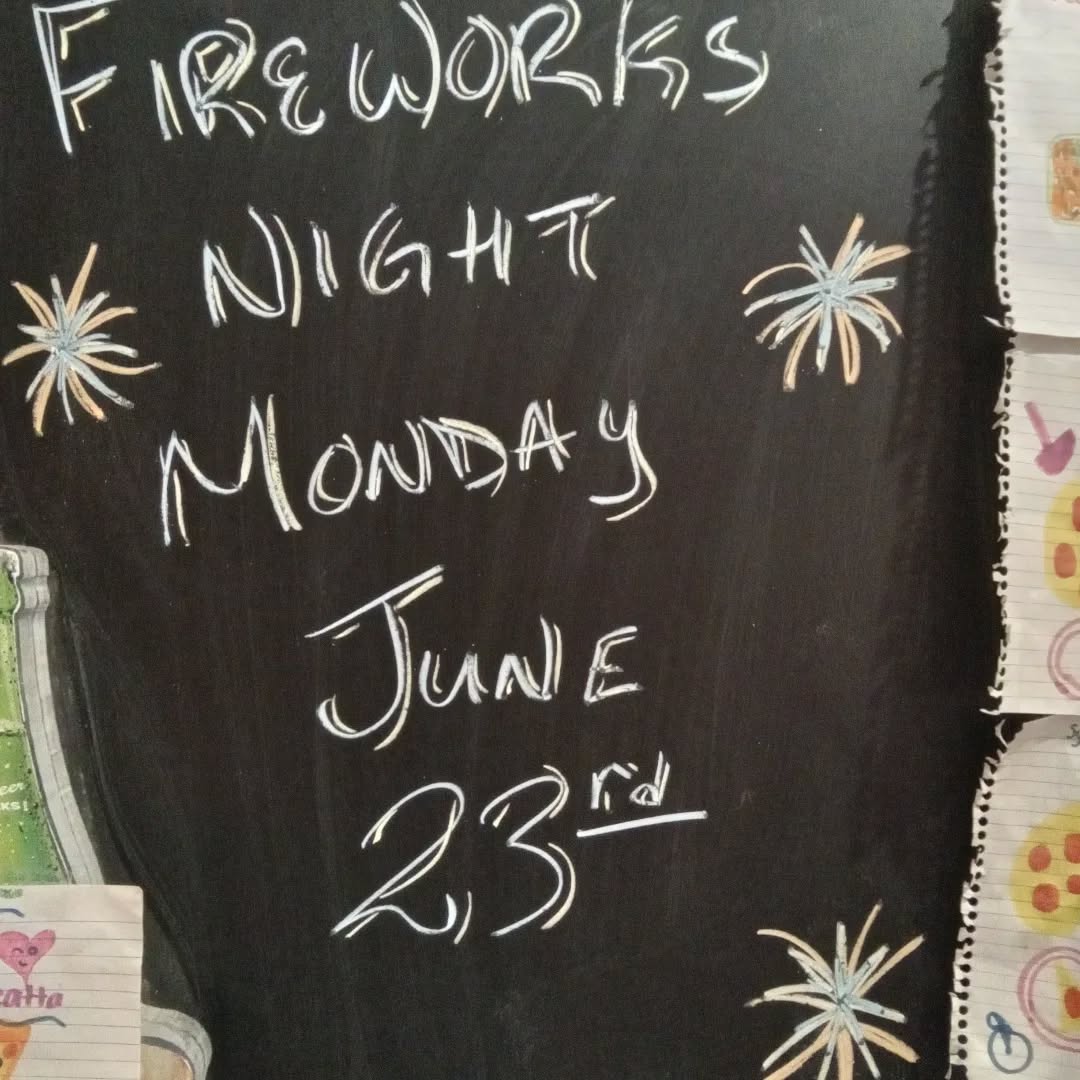 FIREWORKS
NIGHT
MONDAY
JUNE
23rd